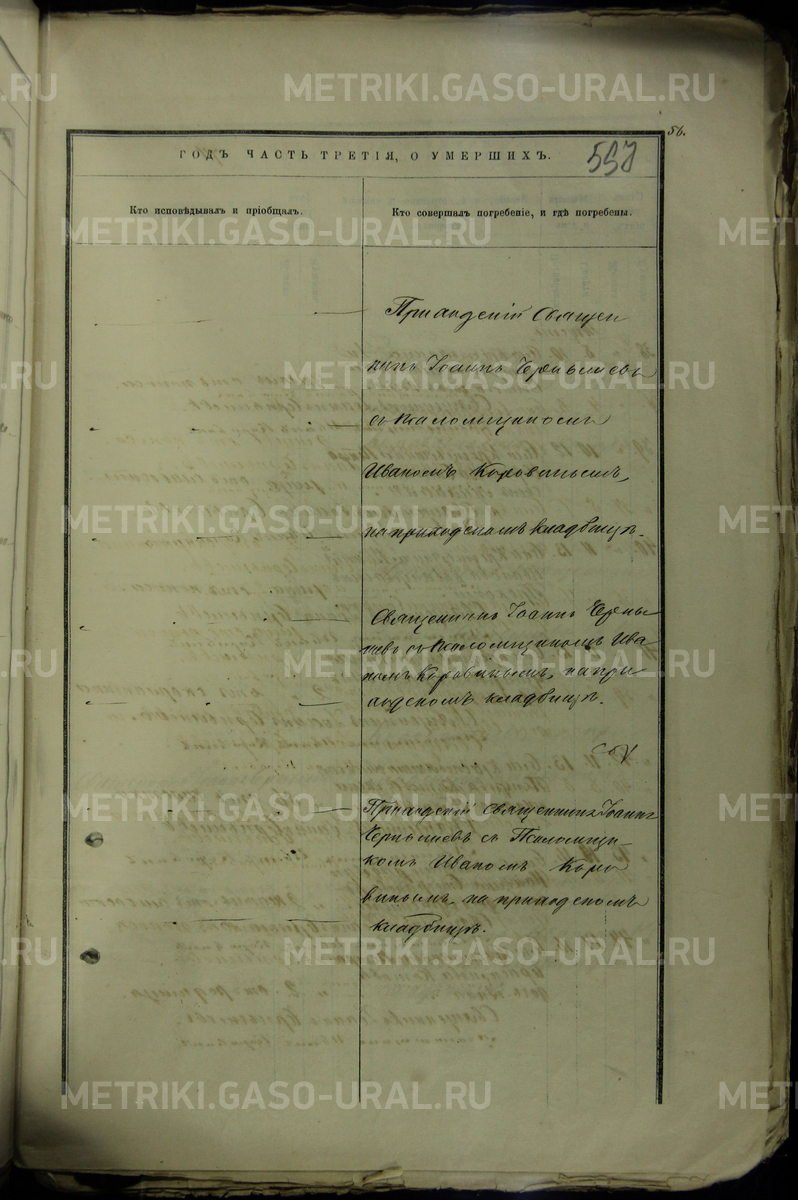 METRIKI.GASO-URAL.RU
56.
ГОДЪ ЧАСТЬ ТРЕТІЯ, О УМЕРШИХЪ.
557
Кто исповѣдывалъ и пріобщалъ.
Кто совершалъ погребеніе, и гдѣ погребены.
Приходскій Священ
никъ Іоаннъ Чернышевъ
съ псаломщикомъ
Иваномъ Коровинымъ,
на приходскомъ кладбищѣ.
Священникъ Іоаннъ Черны
шевъ съ псаломщикомъ Ива
номъ Коровинымъ, на при
ходскомъ кладбищѣ.
Приходскій Священникъ Іоаннъ
Чернышевъ съ Псаломщи
комъ Иваномъ Коро
винымъ, на приходскомъ
кладбищѣ.